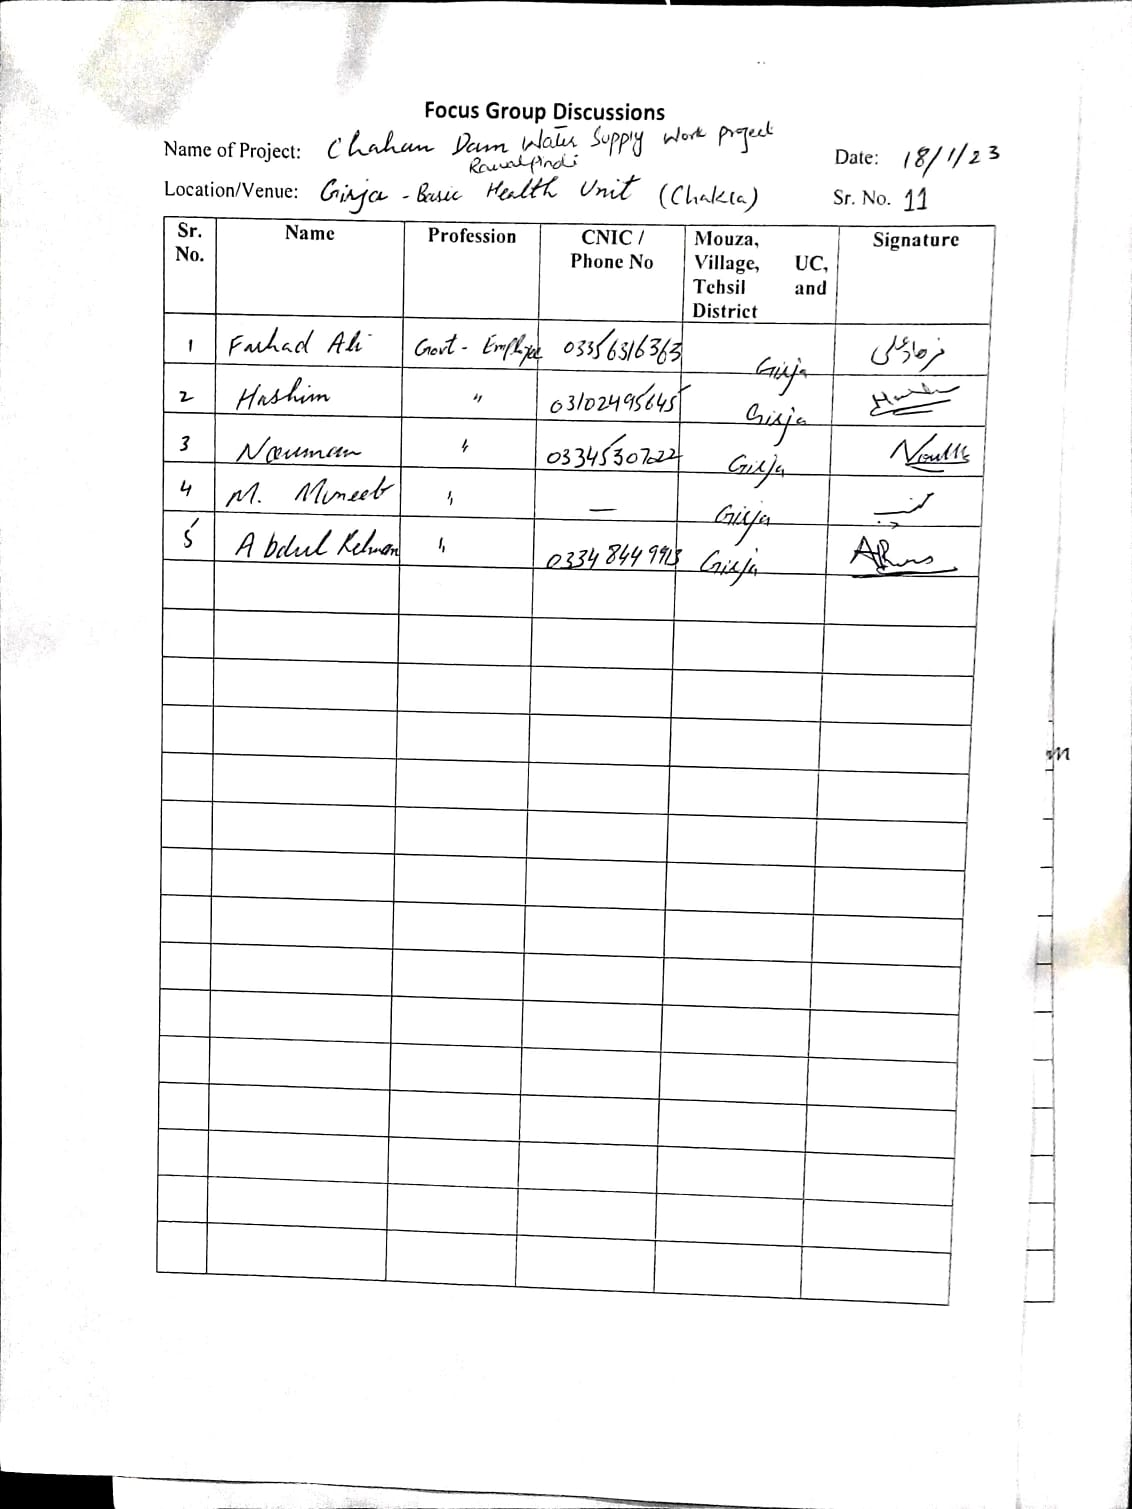 Focus Group Discussions
Name of Project: Chahan Dam Water Supply Work Project
Rawalpindi
Date: 18/1/23
Location/Venue: Girja - Basic Health Unit (Chakra)
Sr. No. 11
Sr. No. Name Profession CNIC / Phone No Mouza, Village, UC, Tehsil and District Signature
1 Farhad Ali Govt - Employee 03356316363 Girja فرهاد علی
2 Hashim " 03102495645 Girja
3 Nouman " 03345307222 Girja
4 M. Muneeb " — Girja منیب
5 Abdul Rehman " Girja
m